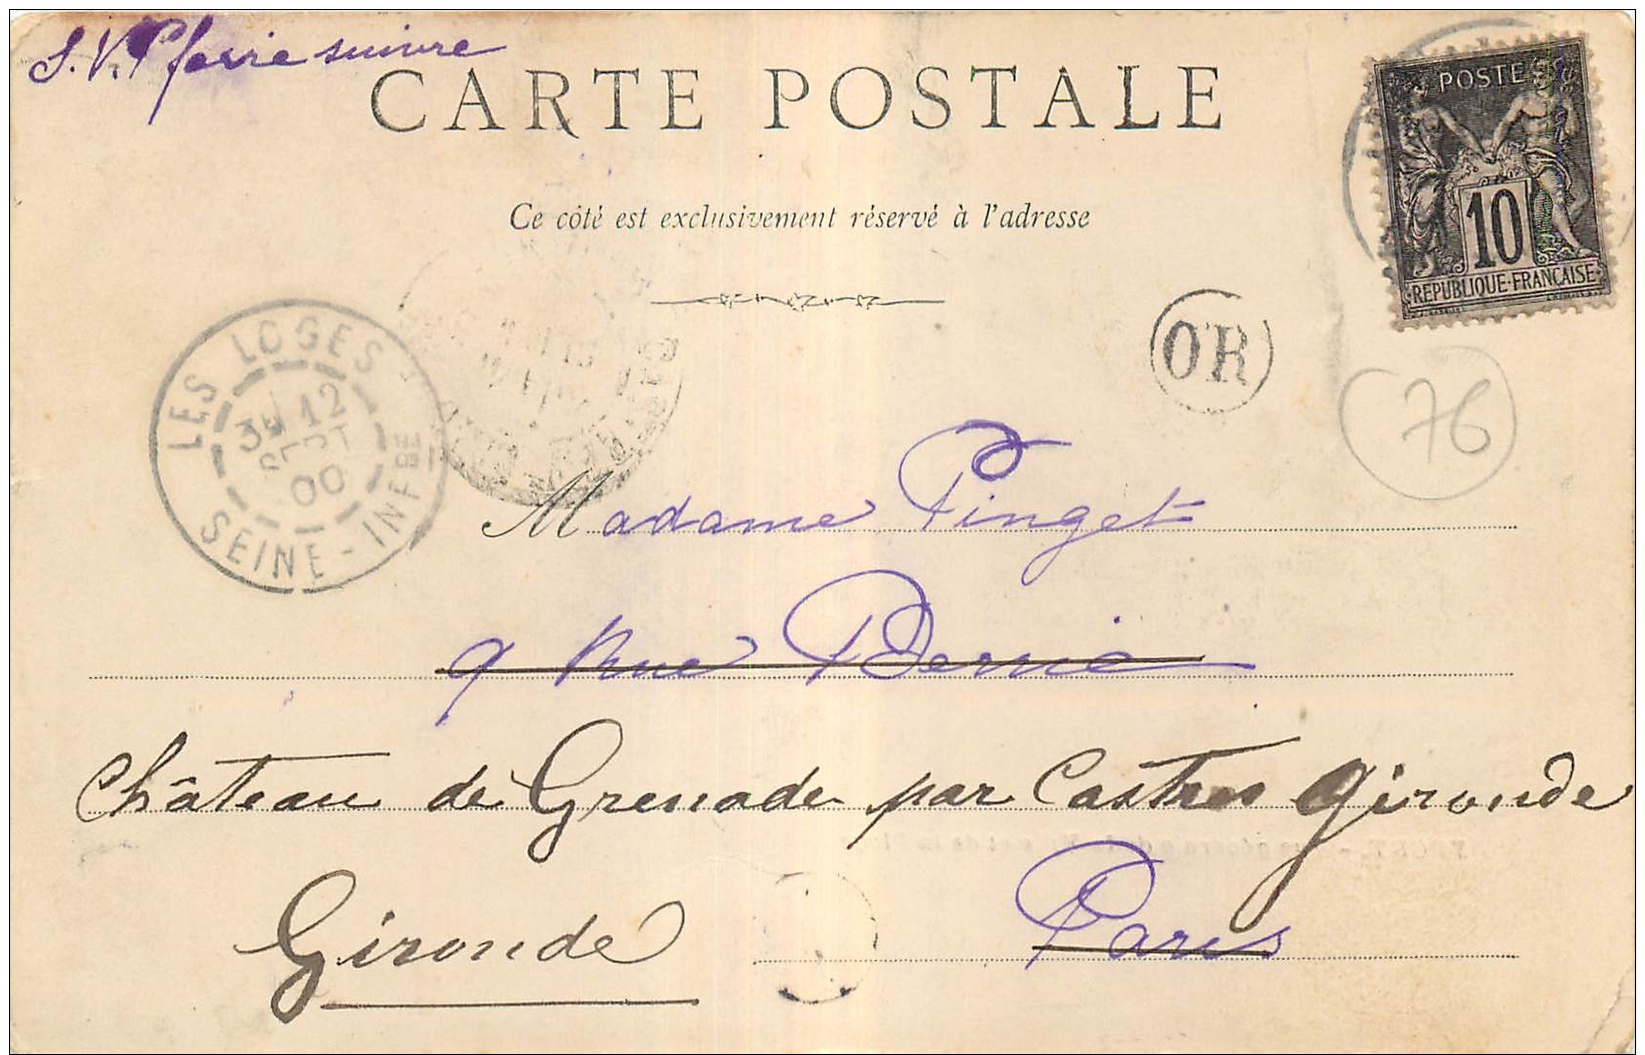 S.V.P faire suivre
CARTE POSTALE
POSTES
10
REPUBLIQUE FRANÇAISE
Ce côté est exclusivement réservé à l'adresse
OR
LES LOGES
12
SEPT
00
SEINE-INFRE
76
Madame Pinget
9 Rue Berrié
Château de Grenade par Castres Gironde
Gironde
Paris